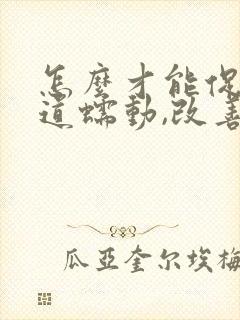 怎麼才能
道蠕動,改善
瓜亞奎尔埃梅